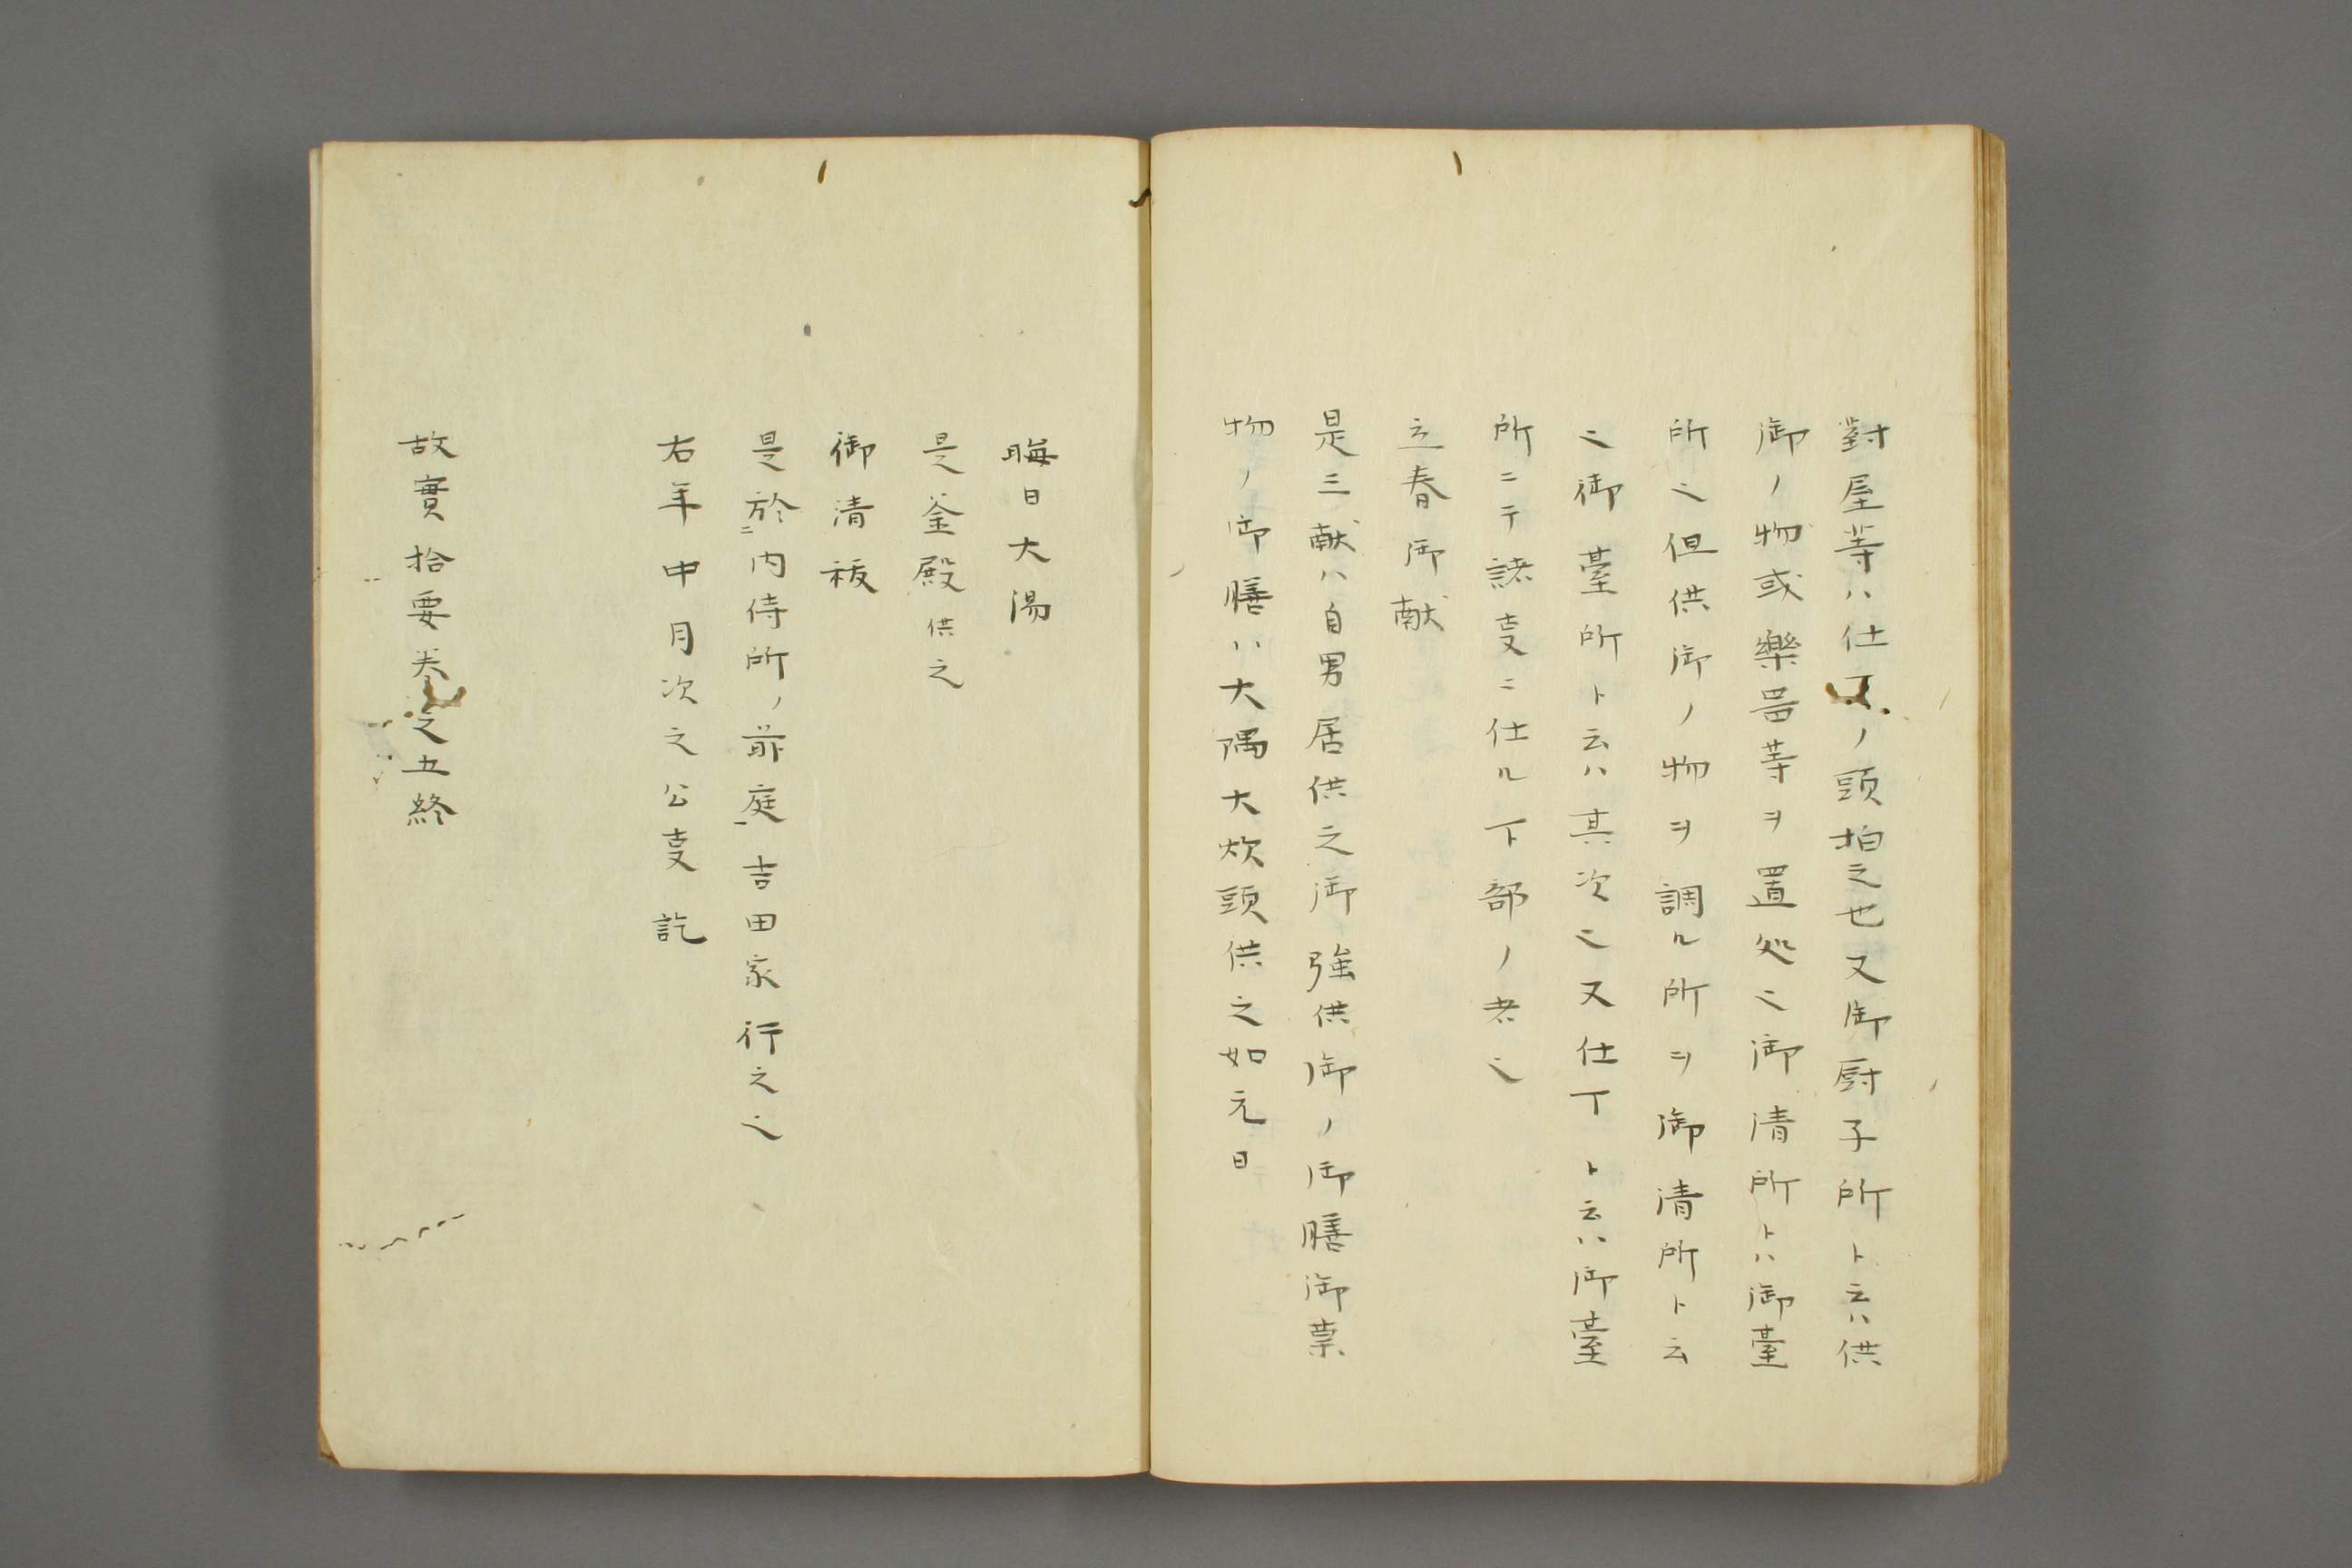 對屋等ハ仕丁ノ頭拍之也又御厨子所ト云ハ供
御ノ物或樂噐等ヲ置処也御清所トハ御臺
所也但供御ノ物ヲ調ル所ヲ御清所ト云
也御臺所ト云ハ其次也又仕丁ト云ハ御臺
所ニテ諸叓ニ仕ル下部ノ者也
立春御献
是三献ハ自男居供之御強供御ノ御膳御菓
物ノ御膳ハ大隅大炊頭供之如元日
晦日大湯
是釜殿供之
御清祓
是於ニ内侍所ノ前庭一吉田家行之也
右年中月次之公叓訖
故實拾要巻之五終